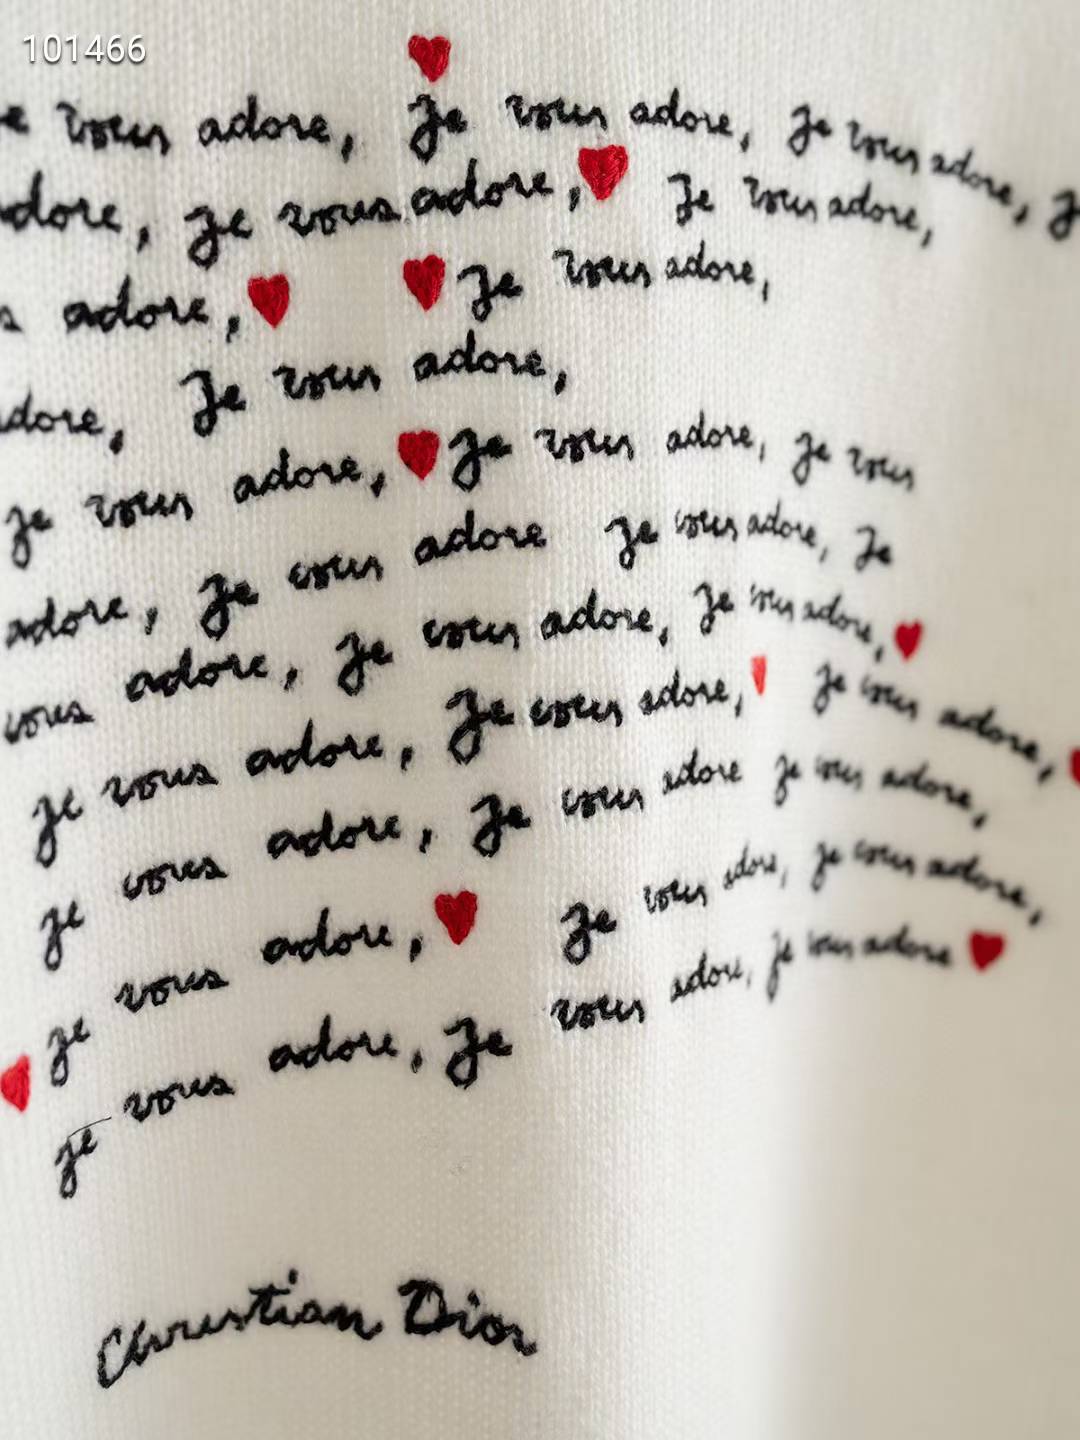 101466
e vous adore, Je vous adore, Je vous adore, J
adore, je vous adore, Je vous adore,
s adore, Je vous adore,
adore, Je vous adore,
je vous adore, Je vous adore, Je vous
adore, Je vous adore Je vous adore, Je
vous adore, Je vous adore, Je vous adore,
je vous adore, Je vous adore, Je vous adore,
je vous adore, Je vous adore je vous adore,
je vous adore, Je vous adore, je vous adore,
je vous adore, Je vous adore, je vous adore
Christian Dior